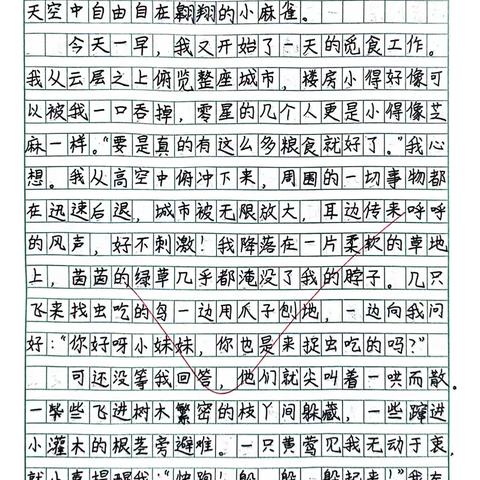 天空中自由自在翱翔的小麻雀。
今天一早，我又开始了一天的觅食工作。
我从云层之上俯览整座城市，楼房小得好像可
以被我一口吞掉，零星的几个人更是小得像芝
麻一样。“要是真的有这么多粮食就好了。”我心
想。我从高空中俯冲下来，周围的一切事物都
在迅速后退，城市被无限放大，耳边传来呼呼
的风声，好不刺激！我降落在一片柔软的草地
上，茵茵的绿草几乎都淹没了我的脖子。几只
飞来找虫吃的鸟一边用爪子刨地，一边向我问
好：“你好呀小妹妹，你也是来捉虫吃的吗？”
可还没等我回答，他们就尖叫着一哄而散。
一些些飞进树木繁密的枝丫间躲藏，一些蹿进
小灌木的根茎旁避难。一只黄莺见我无动于衷，
就小声提醒我：“快跑！躲，躲，躲起来！”我在